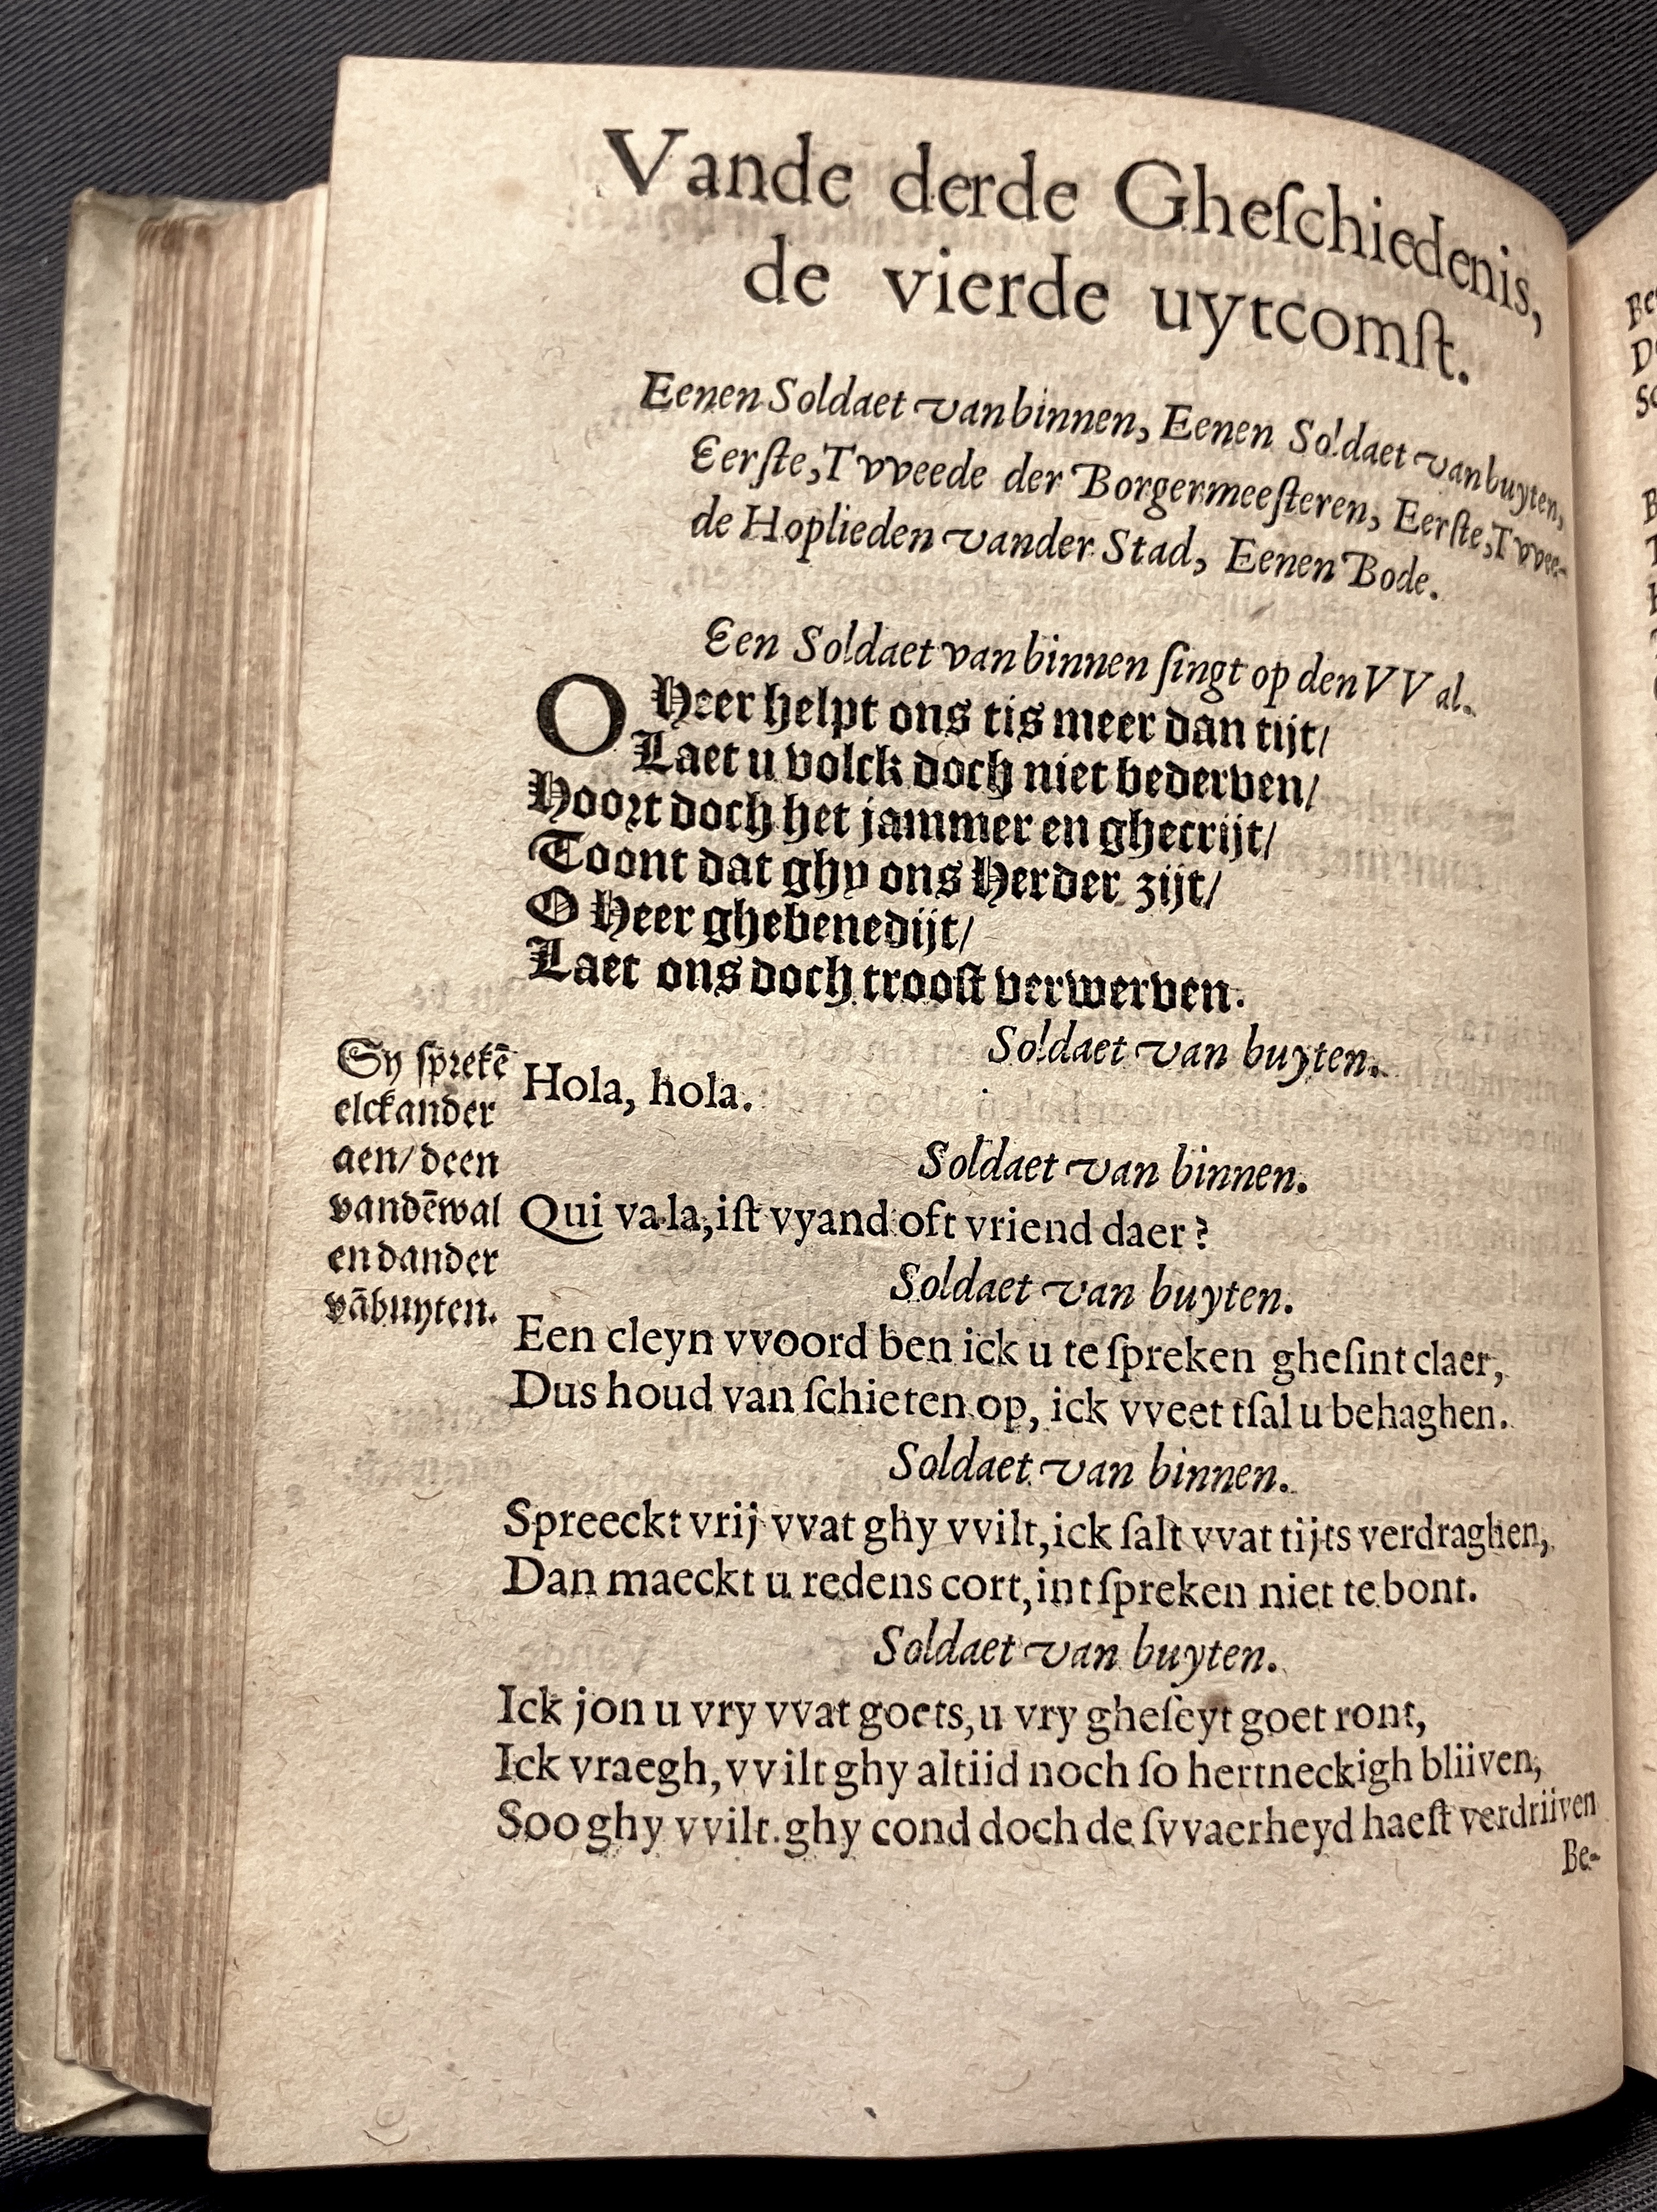 Vande derde Gheſchiedenis,
de vierde uytcomſt.
Eenen Soldaet van binnen, Eenen Soldaet van buyten,
Eerſte, Tvveede der Borgermeeſteren, Eerſte, Tvvee-
de Hoplieden vander Stad, Eenen Bode.
Een Soldaet van binnen ſingt op den VVal.
O Heer helpt ons tis meer dan tijt/
Laet u volck doch niet bederven/
Hoort doch het jammer en ghecrijt/
Toont dat ghy ons Herder zijt/
O Heer ghebenedijt/
Laet ons doch trooſt verwerven.
Soldaet van buyten.
Hola, hola.
Sy ſprekē
elckander
aen/ deen
vandē wal
en dander
vā buyten.
Soldaet van binnen.
Qui va la, iſt vyand oft vriend daer?
Soldaet van buyten.
Een cleyn vvoord ben ick u te ſpreken gheſint claer,
Dus houd van ſchieten op, ick vveet tſal u behaghen.
Soldaet van binnen.
Spreeckt vrij vvat ghy vvilt, ick ſalt vvat tijts verdraghen,
Dan maeckt u redens cort, int ſpreken niet te bont.
Soldaet van buyten.
Ick jon u vry vvat goets, u vry gheſeyt goet ront,
Ick vraegh, vvilt ghy altiid noch ſo hertneckigh bliiven,
Soo ghy vvilt. ghy cond doch de ſvvaerheyd haeſt verdriiven
Be-